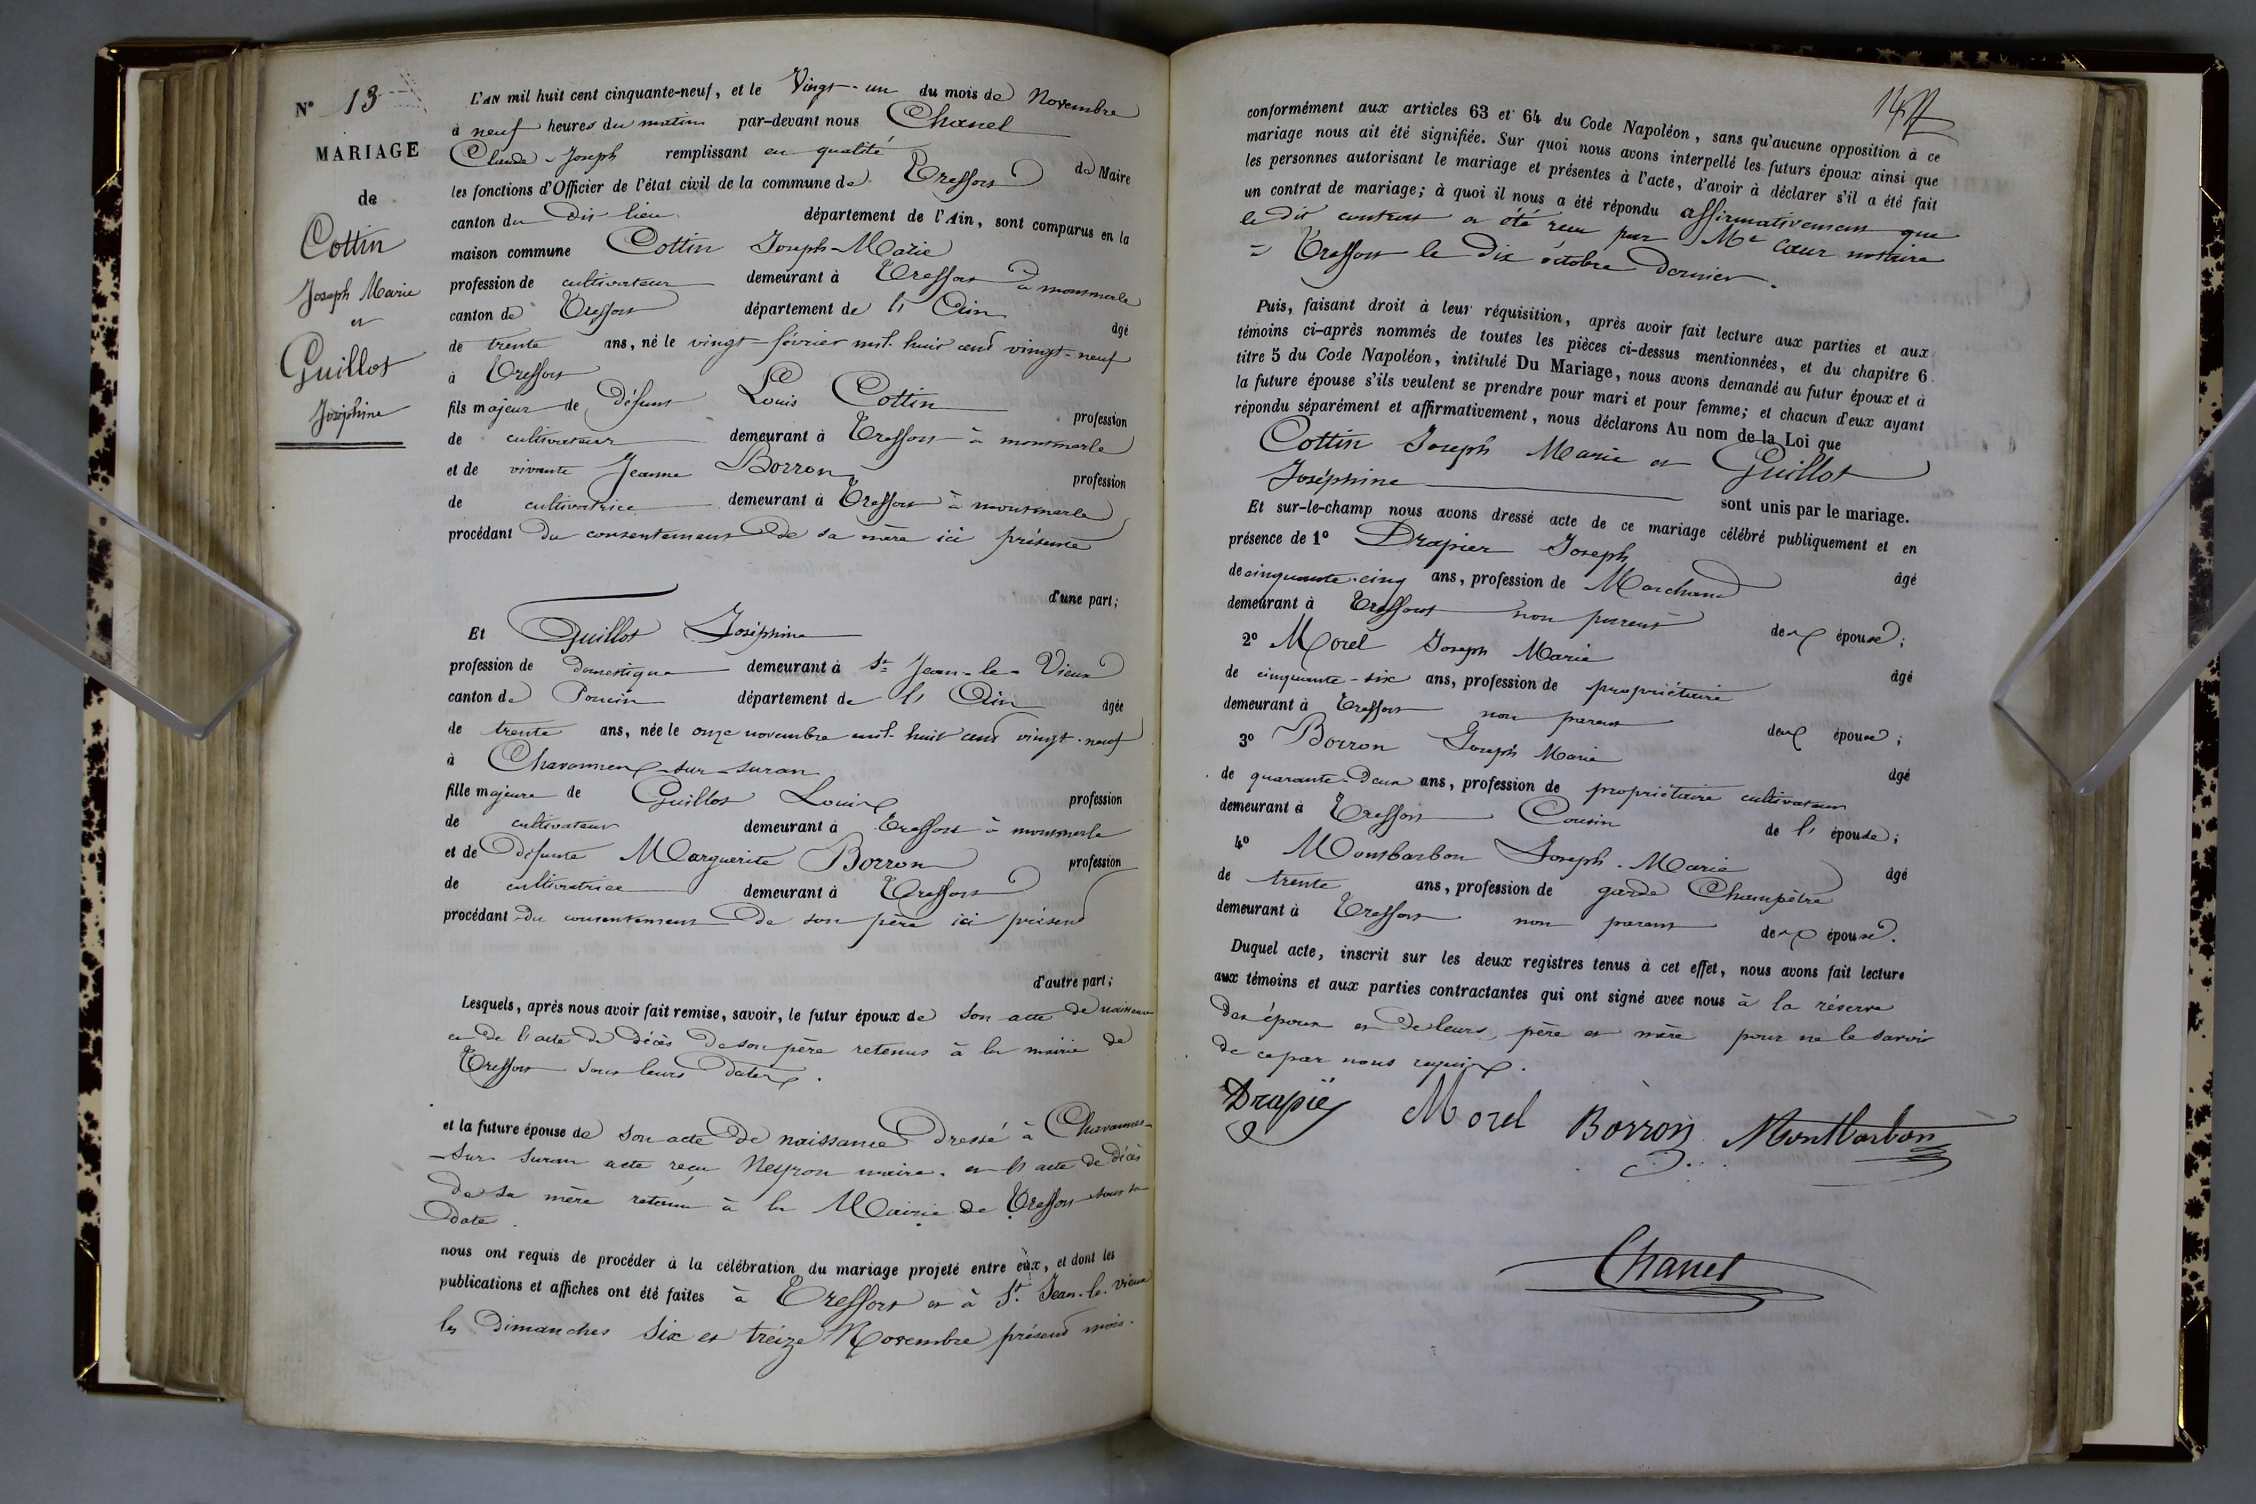 N° 13
MARIAGE
de
Cottin
Joseph Marie
et
Guillot
Joséphine
L'AN mil huit cent cinquante-neuf, et le Vingt-un du mois de Novembre
à neuf heures du matin par-devant nous Chanel
Claude-Joseph remplissant en qualité de Maire
les fonctions d'Officier de l'état civil de la commune de Treffort
canton du dit lieu département de l'Ain, sont comparus en la
maison commune Cottin Joseph-Marie
profession de cultivateur demeurant à Treffort à montmerle
canton de Treffort département de l' Ain âgé
de trente ans, né le vingt février mil huit cent vingt-neuf
à Treffort
fils majeur de défunt Louis Cottin profession
de cultivateur demeurant à Treffort à montmerle
et de vivante Jeanne Borron profession
de cultivatrice demeurant à Treffort à montmerle
procédant du consentement de sa mère ici présente
d'une part;
Et Guillot Joséphine
profession de domestique demeurant à St Jean-le-Vieux
canton de Poncin département de l' Ain âgée
de trente ans, née le onze novembre mil huit cent vingt-neuf
à Chavannes-sur-suran
fille majeure de Guillot Louis profession
de cultivateur demeurant à Treffort à montmerle
et de défunte Marguerite Borron profession
de cultivatrice demeurant à Treffort
procédant du consentement de son père ici présent
d'autre part;
Lesquels, après nous avoir fait remise, savoir, le futur époux de son acte de naissance
et de l'acte de décès de son père retenus à la mairie de
Treffort sous leurs dates.
et la future épouse de son acte de naissance dressé à Chavannes-
-sur suran acte reçu Neyron maire. et l' acte de décès
de sa mère retenu à la Mairie de Treffort sous sa
date.
nous ont requis de procéder à la célébration du mariage projeté entre eux, et dont les
publications et affiches ont été faites à Treffort et à St. Jean-le-vieux
les Dimanches six et treize Novembre présent mois.
conformément aux articles 63 et 64 du Code Napoléon, sans qu'aucune opposition à ce
mariage nous ait été signifiée. Sur quoi nous avons interpellé les futurs époux ainsi que
les personnes autorisant le mariage et présentes à l'acte, d'avoir à déclarer s'il a été fait
un contrat de mariage; à quoi il nous a été répondu affirmativement que
le dit contrat a été reçu par Me Cœur notaire
= Treffort le dix octobre dernier.
Puis, faisant droit à leur réquisition, après avoir fait lecture aux parties et aux
témoins ci-après nommés de toutes les pièces ci-dessus mentionnées, et du chapitre 6
titre 5 du Code Napoléon, intitulé Du Mariage, nous avons demandé au futur époux et à
la future épouse s'ils veulent se prendre pour mari et pour femme; et chacun d'eux ayant
répondu séparément et affirmativement, nous déclarons Au nom de la Loi que
Cottin Joseph Marie et Guillot
Joséphine sont unis par le mariage.
Et sur-le-champ nous avons dressé acte de ce mariage célébré publiquement et en
présence de 1° Drapier Joseph âgé
de cinquante-cinq ans, profession de Marchand
demeurant à Treffort non parent des époux;
2° Morel Joseph Marie âgé
de cinquante-six ans, profession de propriétaire
demeurant à Treffort non parent des époux;
3° Borron Joseph Marie âgé
de quarante-deux ans, profession de propriétaire cultivateur
demeurant à Treffort Cousin de l' épouse;
4° Montbarbon Joseph-Marie âgé
de trente ans, profession de garde Champêtre
demeurant à Treffort non parent des époux.
Duquel acte, inscrit sur les deux registres tenus à cet effet, nous avons fait lecture
aux témoins et aux parties contractantes qui ont signé avec nous à la réserve
des époux et de leurs père et mère pour ne le savoir
de ce par nous requis.
Drapier Morel Borron Montbarbon
Chanel